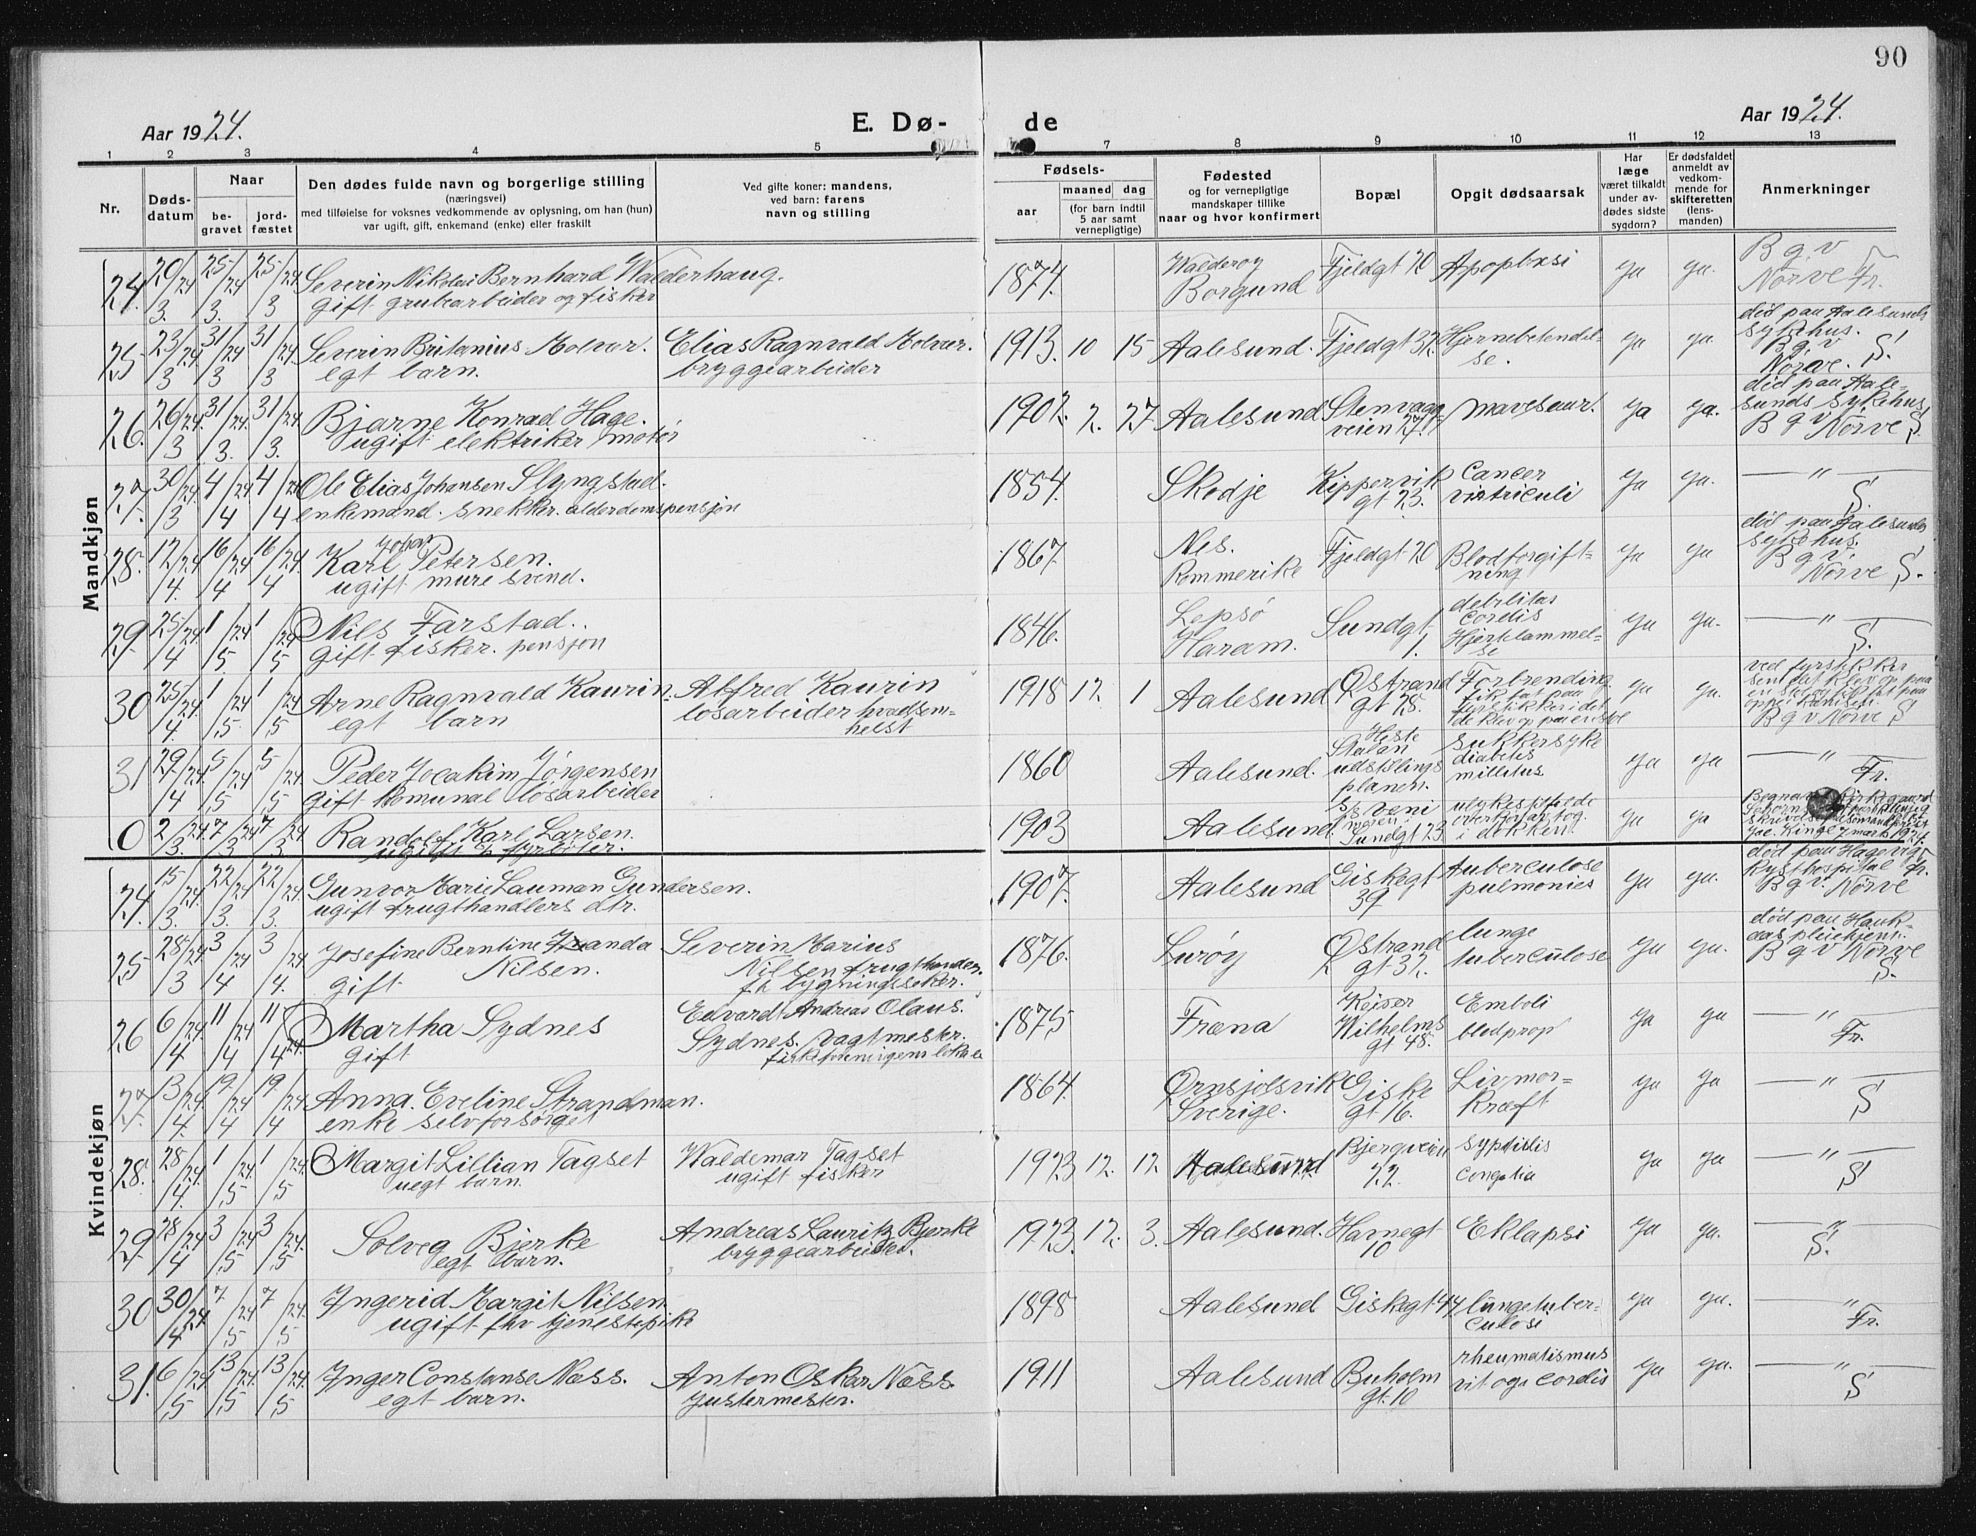 90
Aar 1924.
E. Dø-
de
Aar 1924.
1 2 3 4 5 7 8 9 10 11 12 13
Nr.
Døds-
datum
Naar
be-
gravet
jord-
fæstet
Den dødes fulde navn og borgerlige stilling
(næringsvei)
med tilføielse for voksnes vedkommende av oplysning, om han (hun)
var ugift, gift, enkemand (enke) eller fraskilt
Ved gifte koner: mandens,
ved barn: farens
navn og stilling
Fødsels-
aar
maaned dag
(for barn indtil
5 aar samt
vernepligtige)
Fødested
og for vernepligtige
mandskaper tillike
naar og hvor konfirmert
Bopæl
Opgit dødsaarsak
Har
læge
været tilkaldt
under av-
dødes sidste
sygdom?
Er dødsfaldet
anmeldt av
vedkom-
mende for
skifteretten
(lens-
manden)
Anmerkninger
Mandkjøn
24. 20/3 24 25/3 24 25/3 24 Severin Nikolai Bernhard Walderhaug. 1874. Walderøy Fjeldgt 20 Apoplexi ja ja. B g v
gift grubearbeider og fisker Borgund Nørve Fr.
25 23/3 24 31/3 24 31/3 24 Severin Britanius Molvær. Elias Ragnvald Molvær. 1913. 10 15 Aalesund. Fjeldgt 32. Hjernebetendel- ja ja død paa Aalesunds
egt barn. bryggearbeider se. sykehus.
B g v
Nørve. S.
26. 26/3 24 31/3 24 31/3 24 Bjarne Konrad Hage. 1902. 2. 27 Aalesund Stenvaag mavesaar. ja ja. død paa Aale-
ugift elektriker motør veien 27. sunds sykehus
B g v Nørve S.
27. 30/3 24 4/4 24 4/4 24 Ole Elias Johansen Slyngstad. 1854. Skodje Kippervik Cancer ja ja. — " —
enkemand. snekker. alderdomspensjon gt 23. S.
28. 12/4 24 16/4 24 16/4 24 Karl Johan Petersen. 1867. Nes. Fjeldgt 20 Blodforgift- ja ja død paa Aalesunds
ugift mure svend. Rommerike ning sykehus.
B g v.
Nørve S.
29 25/4 24 1/5 24 1/5 24 Nils Farstad. 1846. Lepsø Sundgt debilitas ja ja. — " —
gift fisker. pensjon Haram. 1. cordis S.
30 25/4 24 1/5 24 1/5 24 Arne Ragnvald Kaurin. Alfred Kaurin 1918 12. 1 Aalesund Østrand Forbrending ja ja.
egt barn løsarbeider hvadsem- gt 28. B g v Nørve S
helst
31 29/4 24 5/5 24 5/5 24 Peder Joakim Jørgensen 1860 Aalesund. sukkersyke ja ja — " —
gift komunal løsarbeider planen. diabetis Fr.
millitus
0 2/3 24 7/3 24 7/3 24 Randolf Karl Larsen. 1903 Aalesund. Sundgt 23 ja ja
ugift fyrbøter.
Kvindekjøn
24. 15/3 24 22/3 24 22/3 24 Gunvor Marie Lauman Gundersen. 1907. Aalesund Giskegt tuberculose ja ja. død paa Hagevig
ugift frugthandlers dtr. 39 pulmonies kysthospital Fr.
B g v. Nørve
25 28/3 24 3/4 24 3/4 24 Josefine Berntine Nilsen. Severin Marius 1876. Lurøy Østrand lunge ja ja.
gift Nilsen frugthandler. gt 32. tuberculose B g v Nørve
S.
26 6/4 24 11/4 24 11/4 24 Martha Sydnes Edvardt Andreas Olaus. 1875 Fræna Keiser Emboli ja ja — " —
gift Sydnes. vagtmester. Wilhelms blodprop Fr.
gt 48.
27. 13/4 24 19/4 24 19/4 24 Anna. Eveline Strandman. 1864. Ørnsjolsvik Giske Livmor- ja ja — " —
enke selvforsørget Sverige. gt 16. kræft S
28. 28/4 24 1/5 24 1/5 24 Margit Lillian Tagset Waldemar Tagset 1923 12. 12 Aalesund Bjergveien ja ja — " —
uegt barn. ugift fisker 22. S
29 28/4 24 3/5 24 3/5 24 Solveg Bjerke Andreas Lauritz Bjerke 1923. 12. 3. Aalesund. Havnegt Eklapsi ja ja. — " —
egt barn. bryggearbeider. 10 S.
30 30/4 24 7/5 24 7/5 24 Ingerid Margit Nilsen. 1898 Aalesund Giskegt 44 lungetuber- ja ja. — " —
ugift fhv tjenestepike culose Fr.
31. 6/5 24 13/5 24 13/5 24 Inger Constanse Næss. Anton Oskar Næss. 1911 Aalesund Buholm rheumatismus ja ja. — " —
egt barn. Justermester. gt 10 cordis S